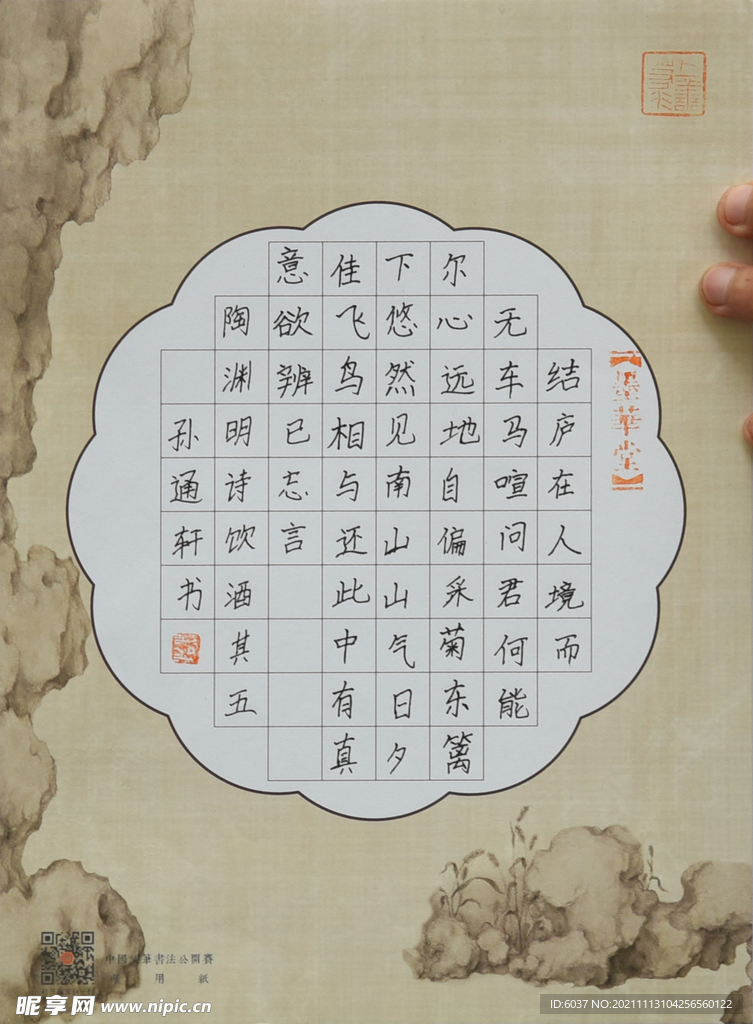 【墨華堂】
结庐在人境而
无车马喧问君何能
尔心远地自偏采菊东篱
下悠然见南山山气日夕
佳飞鸟相与还此中有真
意欲辨已忘言
陶渊明诗饮酒其五
孙通轩书
中國硬筆書法公開賽
用紙
昵享网 www.nipic.cn
ID:6037 NO:20211113104256560122